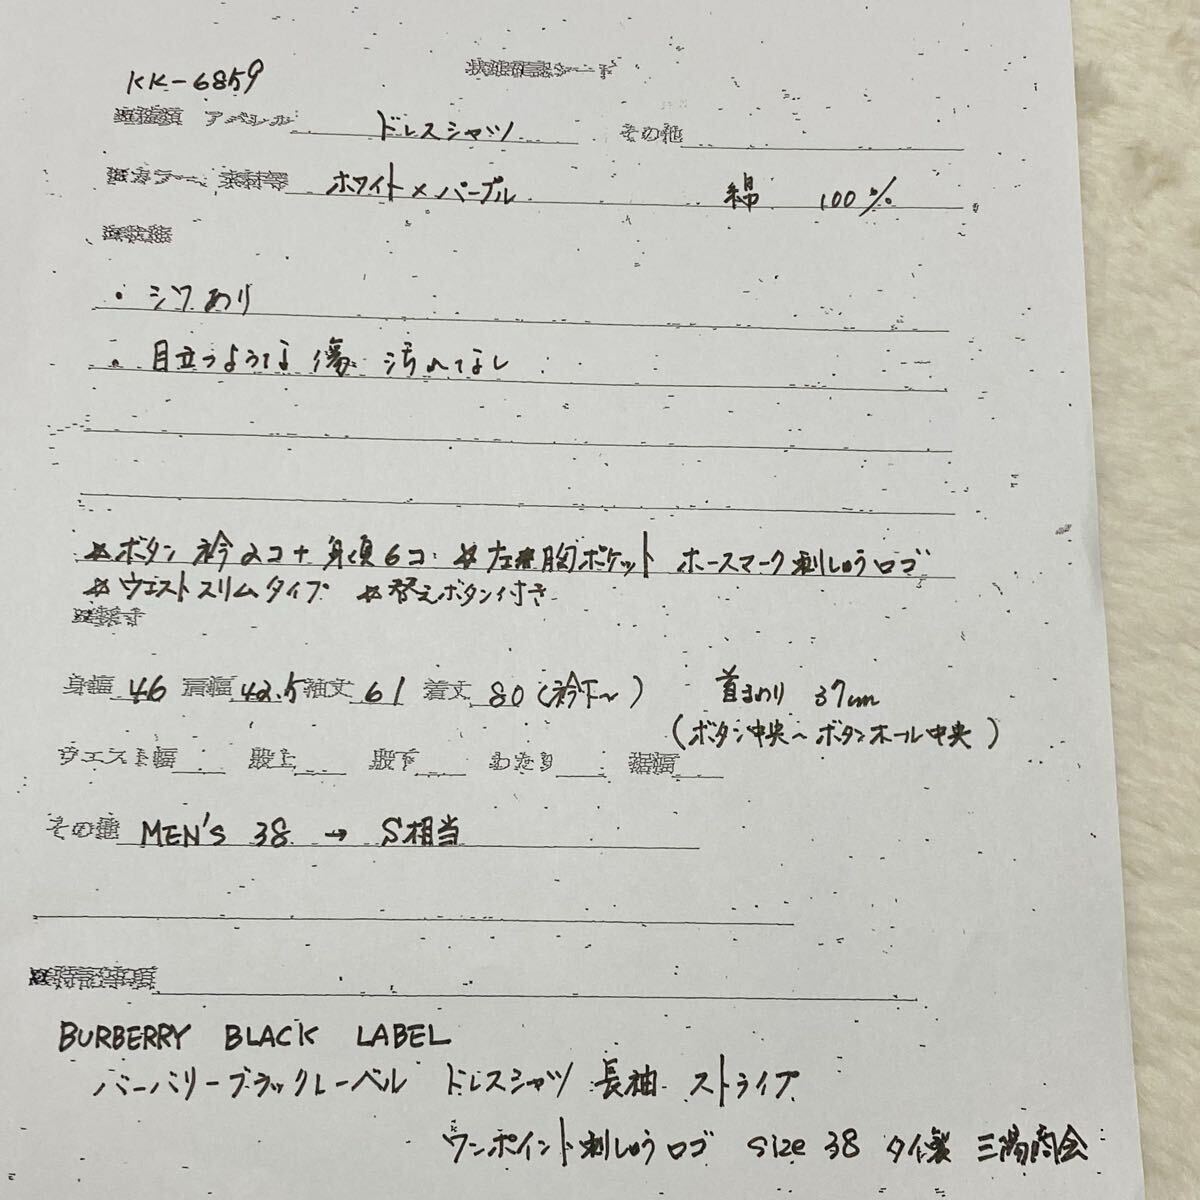 状態確認シート
KK-6859
種類 アパレル ドレスシャツ その他
カラー、素材等 ホワイト×パープル 綿 100%
状態
・シワあり
・目立つような傷 汚れなし
☆ボタン 衿2コ+身頃6コ ☆左胸ポケット ホースマーク刺しゅうロゴ
☆ウエストスリムタイプ ☆替えボタン付き
採寸
身幅 46 肩幅 42.5 袖丈 61 着丈 80(衿下~) 首まわり 37cm
(ボタン中央~ボタンホール中央)
ウエスト幅 股上 股下 わたり 裾幅
その他 MEN'S 38 → S相当
特記事項
BURBERRY BLACK LABEL
バーバリーブラックレーベル ドレスシャツ 長袖 ストライプ
ワンポイント刺しゅうロゴ size 38 タイ製 三陽商会